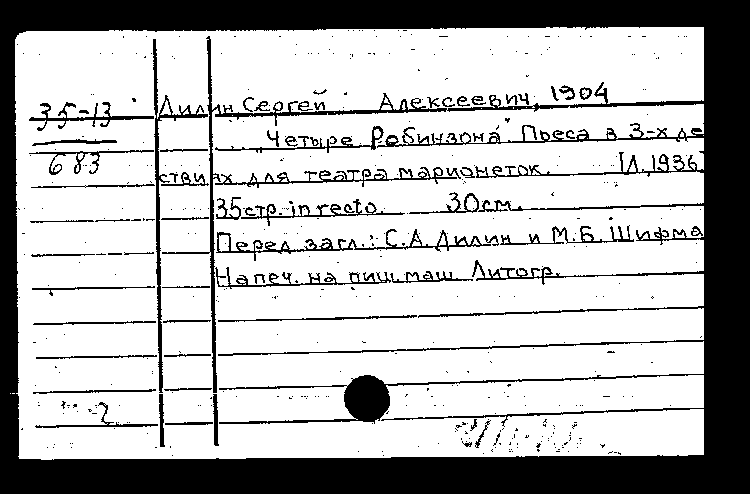 35-13
683
Дилин, Сергей Алексеевич, 1904
„Четыре Робинзона". Пьеса в 3-х де
ствиях для театра марионеток. [Л., 1936]
35 стр. in recto. 30 см.
Перед загл.: С.А. Дилин и М.Б. Шифма
Напеч. на пиш.маш. Литогр.